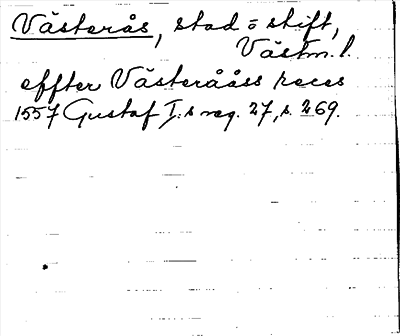 Västerås, stad o stift,
Västm. l.
effter Västerååss reces
1557 Gustaf I:s reg. 27, s. 269.